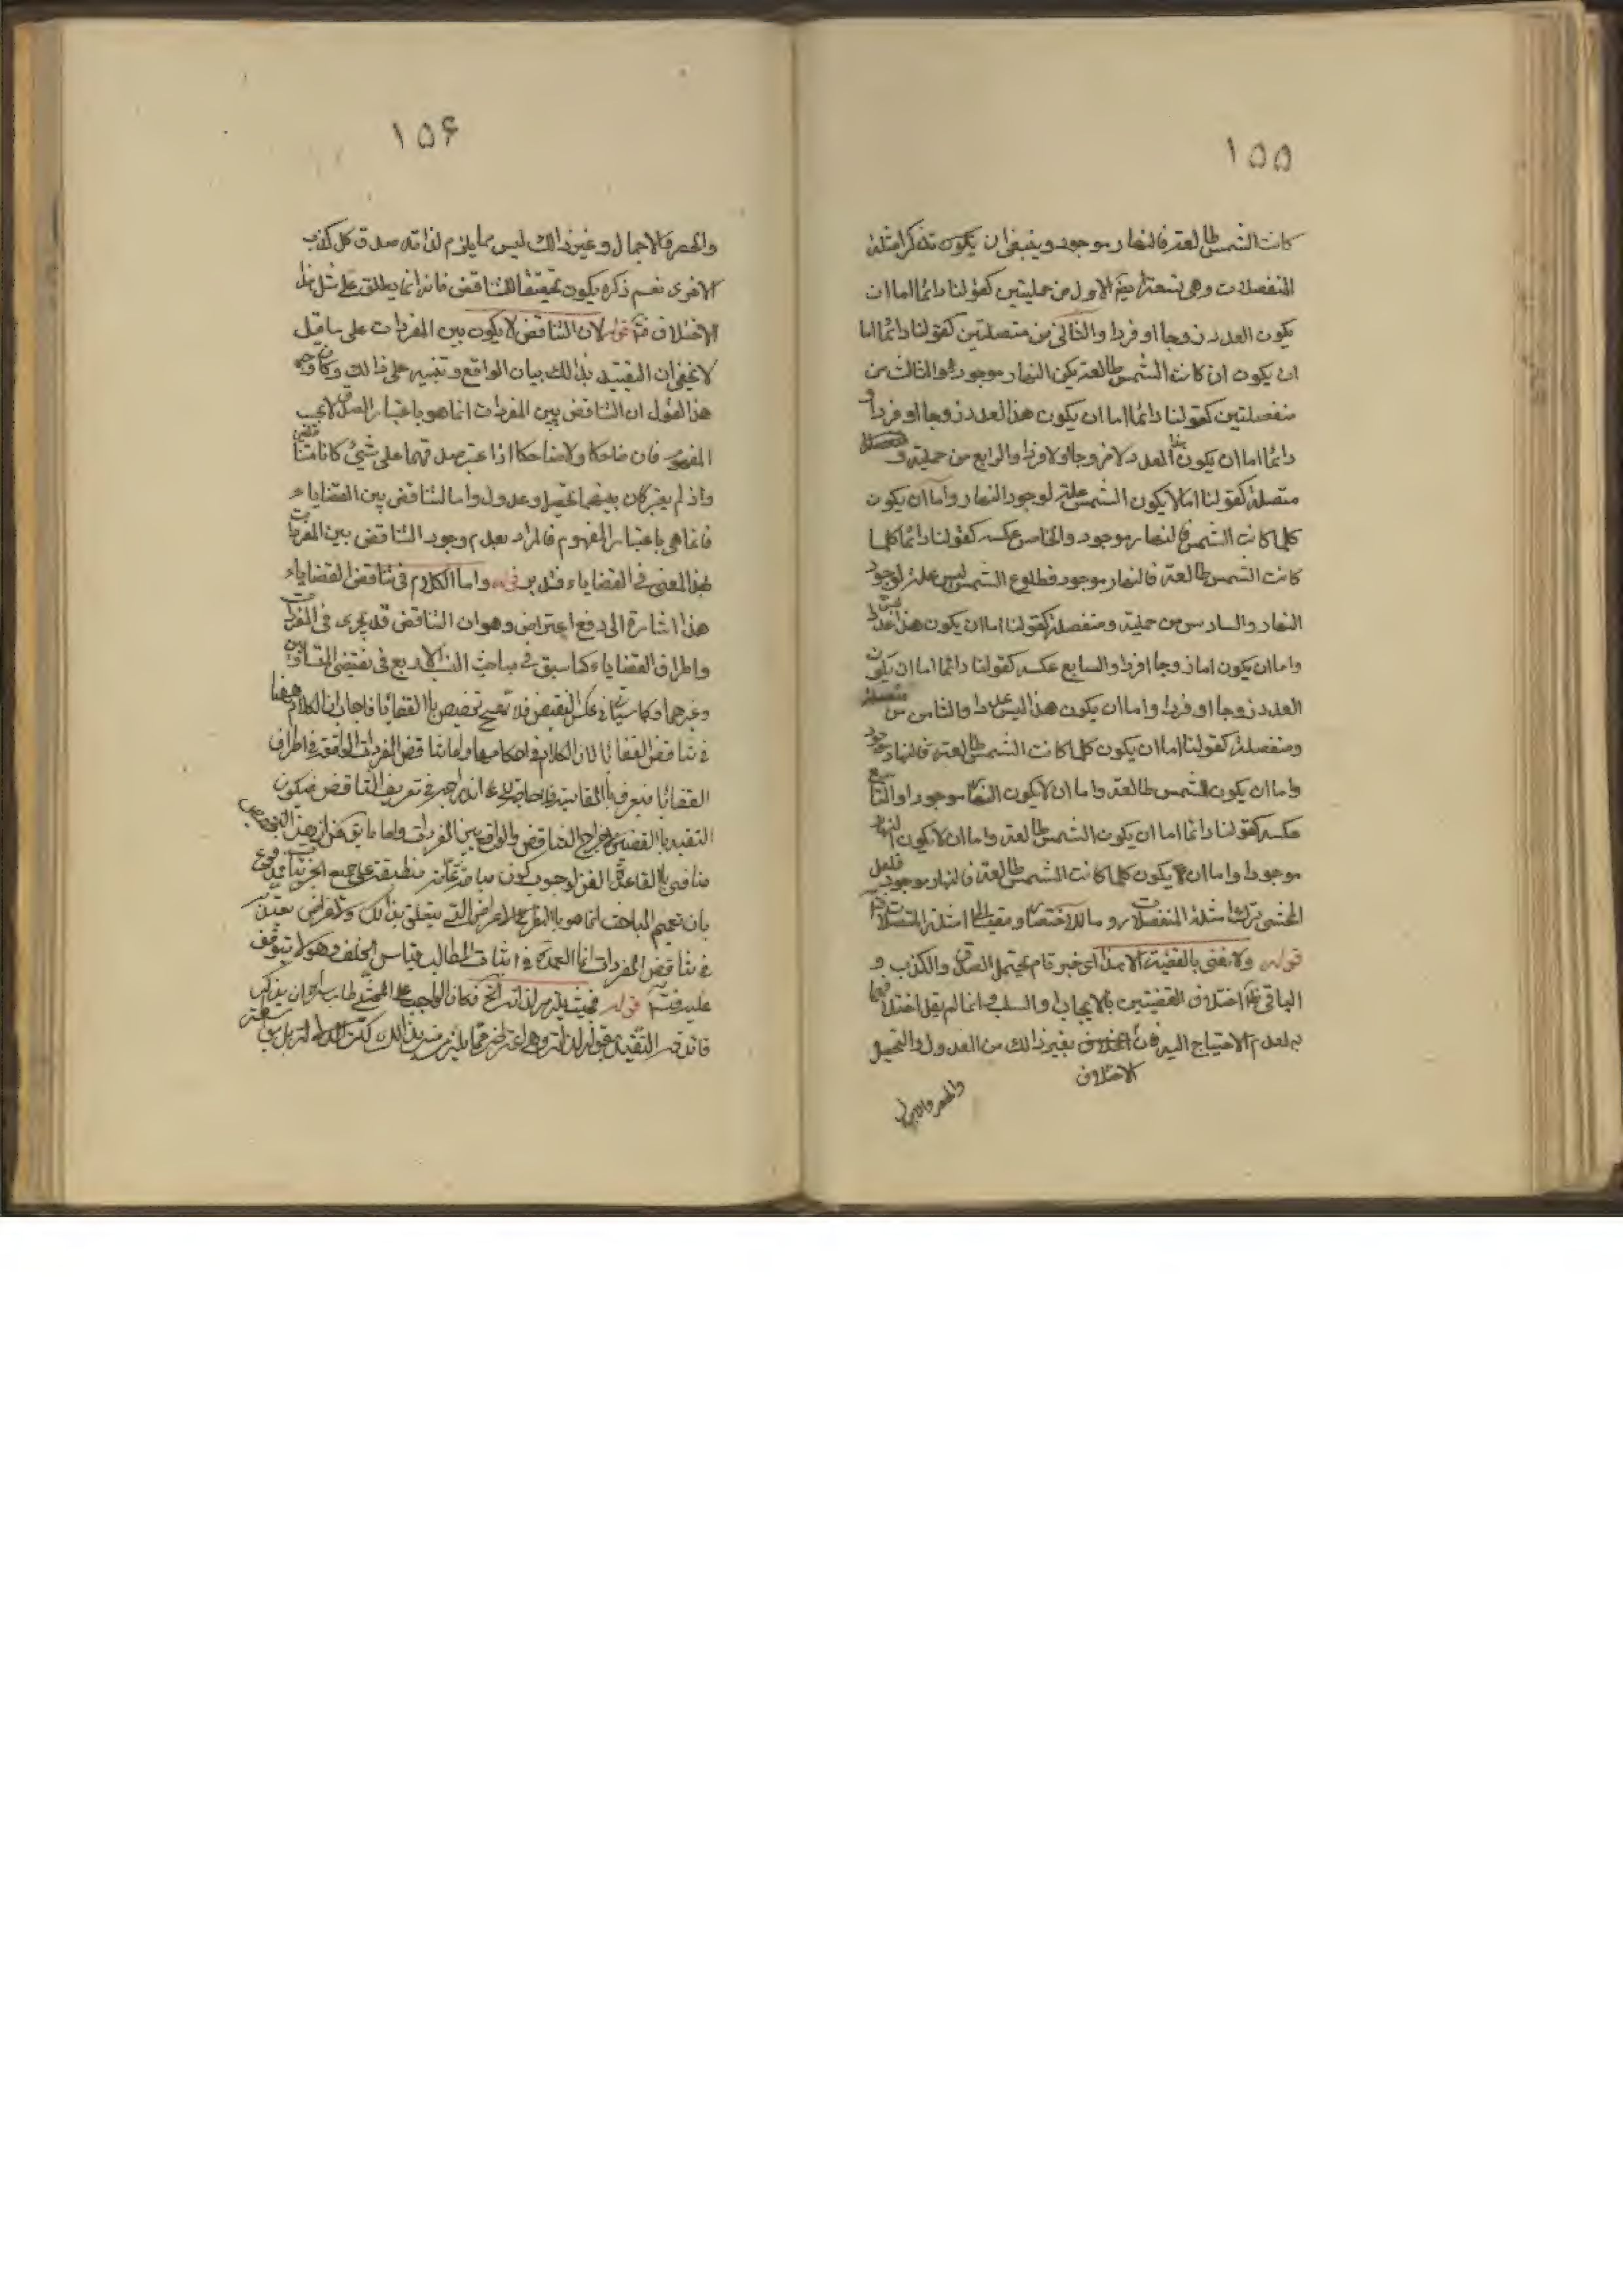 ١٥٥
كانت الشمس طالعة فالنهار موجود وينبغى ان يكون تذكر امثلة
المنفصلات وهى تسعة ايضا الاول من حمليتين كقولنا دائما اما ان
يكون العدد زوجا او فردا والثانى من متصلتين كقولنا دائما اما
ان يكون ان كانت الشمس طالعة يكن النهار موجود والثالث من
منفصلتين كقولنا دائما اما ان يكون هذا العدد زوجا او فردا و
دائما اما ان يكون هذا العدد لا زوجا ولا فردا والرابع من حملية و
متصلة كقولنا اما لا يكون الشمس علة لوجود النهار واما ان يكون
كلما كانت الشمس فالنهار موجود والخامس عكسه كقولنا دائما كلما
كانت الشمس طالعة فالنهار موجود فطلوع الشمس ليس علة لوجود
النهار والسادس من حملية ومنفصلة كقولنا اما ان يكون هذا عددا
واما ان يكون اما زوجا او فردا والسابع عكسه كقولنا دائما اما ان يكون
العدد زوجا او فردا واما ان يكون هذا ليس عددا والثامن من متصلة
ومنفصلة كقولنا اما ان يكون كلما كانت الشمس طالعة فالنهار موجود
واما ان يكون الشمس طالعة واما ان لا يكون النهار موجودا والتاسع
عكسه كقولنا دائما اما ان يكون الشمس طالعة واما ان لا يكون النهار
موجودا واما ان لا يكون كلما كانت الشمس طالعة فالنهار موجود فلعل
المحشى ترك امثلة المنفصلات روما للاختصار امثلة المتصلات
قوله ولا نعنى بالقضية الا هذا اى خبر تام يحتمل الصدق والكذب و
الباقى ظ اختلاف القضيتين بالايجاب والسلب انما لم يقل اختلافهما
به لعدم الاحتياج اليه فان بغير ذالك من العدول والتحصيل
الاختلاف
والحصر والاهمال
١٥۶
والحصر والاجمال وغير ذالك ليس مما يلزم لذاته صدق كل كذب
الاخرى نعم ذكره يكون تحقيقا للتناقض فانه انما يطلق على مثل هذا
الاختلاف قوله لان التناقض لا يكون بين المفردات على ما قيل
لا يخفى ان التقييد بذالك بيان الواقع وتنبيه على ذالك وكان وجه
هذا القول ان التناقض بين المفردات انما هو باعتبار الصدق لا بحسب
المفهوم فان ضاحكا ولا ضاحكا اذا اعتبر صدقهما على شئ كانا متناقضين
واذ لم يعتبر كان بينهما تحصيل وعدول واما التناقض بين القضاياء
فانما هى باعتبار المفهوم فالمراد بعدم وجود التناقض بين المفردات
بهذا المعنى فى القضاياء فتدبر قوله واما الكلام فى تناقض القضاياء
هذا اشارة الى دفع اعتراض وهو ان التناقض قد يجرى فى المفردات
واطراف القضاياء كما سبق فى مباحث النسب الاربع فى نقيضى المتساويين
وغيرهما وكما سياتى فى عكس النقيض فلا تصح تخصيص بالقضايا فاجاب ان الكلام ههنا
فى تناقض القضايا لان الكلام فى احكامها واما تناقض المفردات الواقعة فى اطراف
القضايا فيعرف بالمقايسة فلا حاجة الى اندراجه فى تعريف التناقض فيكون
التقييد بالقضيتين لاخراج التناقض الواقع بين المفردات واما ما يق من ان هذا التخصيص
منافى بالقاعدة الفن لوجوب كون مباحثها عامة منطبقة على جميع الجزئيات
بان تعميم المباحث انما هو بالنظر الى الاغراض التى يتعلق بذالك
فى تناقض المفردات انما العمدة فى اثبات المطالب قياس الخلف وهو لا يتوقف
عليه قوله بحيث يلزم لذاته الخ فكان الواجب على المحشى ان يذكر
فائدة التقييد بقوله لذاته